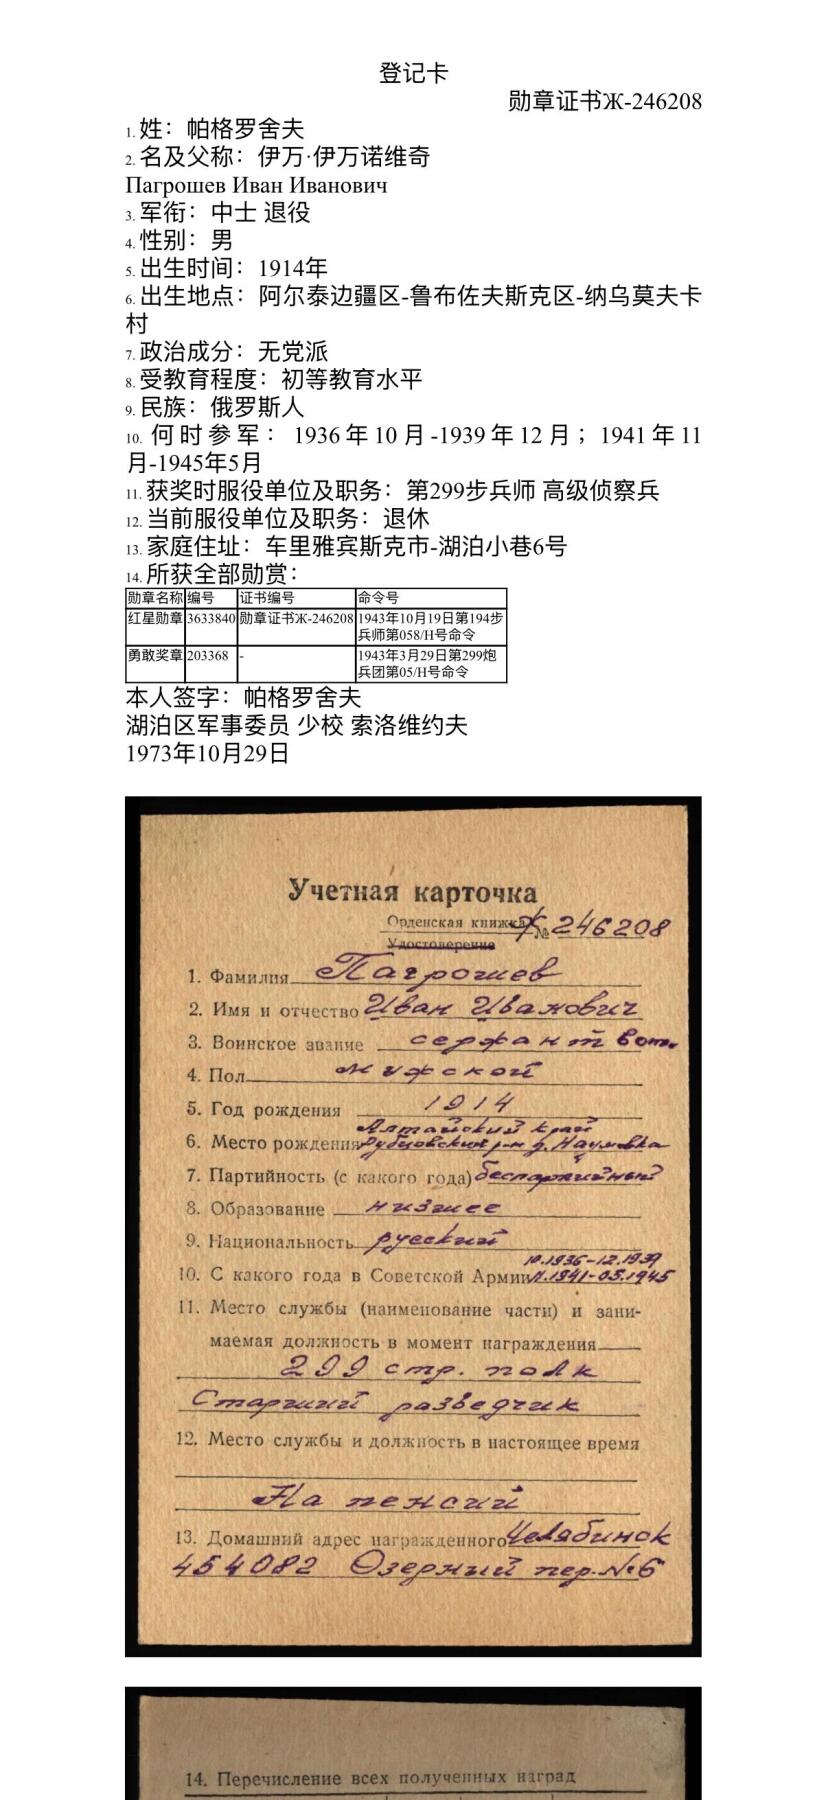 登记卡
勋章证书Ж-246208
1. 姓：帕格罗舍夫
2. 名及父称：伊万·伊万诺维奇
Пагрошев Иван Иванович
3. 军衔：中士 退役
4. 性别：男
5. 出生时间：1914年
6. 出生地点：阿尔泰边疆区-鲁布佐夫斯克区-纳乌莫夫卡
村
7. 政治成分：无党派
8. 受教育程度：初等教育水平
9. 民族：俄罗斯人
10. 何时参军：1936年10月-1939年12月；1941年11
月-1945年5月
11. 获奖时服役单位及职务：第299步兵师 高级侦察兵
12. 当前服役单位及职务：退休
13. 家庭住址：车里雅宾斯克市-湖泊小巷6号
14. 所获全部勋赏：
勋章名称 编号 证书编号 命令号
红星勋章 3633840 勋章证书Ж-246208 1943年10月19日第194步
兵师第058/H号命令
勇敢奖章 203368 - 1943年3月29日第299炮
兵团第05/H号命令
本人签字：帕格罗舍夫
湖泊区军事委员 少校 索洛维约夫
1973年10月29日
Учетная карточка
Орденская книжка Ж № 246208
Удостоверение
1. Фамилия Пагрошев
2. Имя и отчество Иван Иванович
3. Воинское звание сержант в от.
4. Пол мужской
5. Год рождения 1914
Алтайский край
6. Место рождения Рубцовский р-н д. Наумовка
7. Партийность (с какого года) беспартийный
8. Образование низшее
9. Национальность русский
10.1936-12.1939
10. С какого года в Советской Армии 11.1941-05.1945
11. Место службы (наименование части) и зани-
маемая должность в момент награждения
299 стр. полк
Старший разведчик
12. Место службы и должность в настоящее время
На пенсий
13. Домашний адрес награжденного Челябинск
454082 Озерный пер. №6
14. Перечисление всех полученных наград